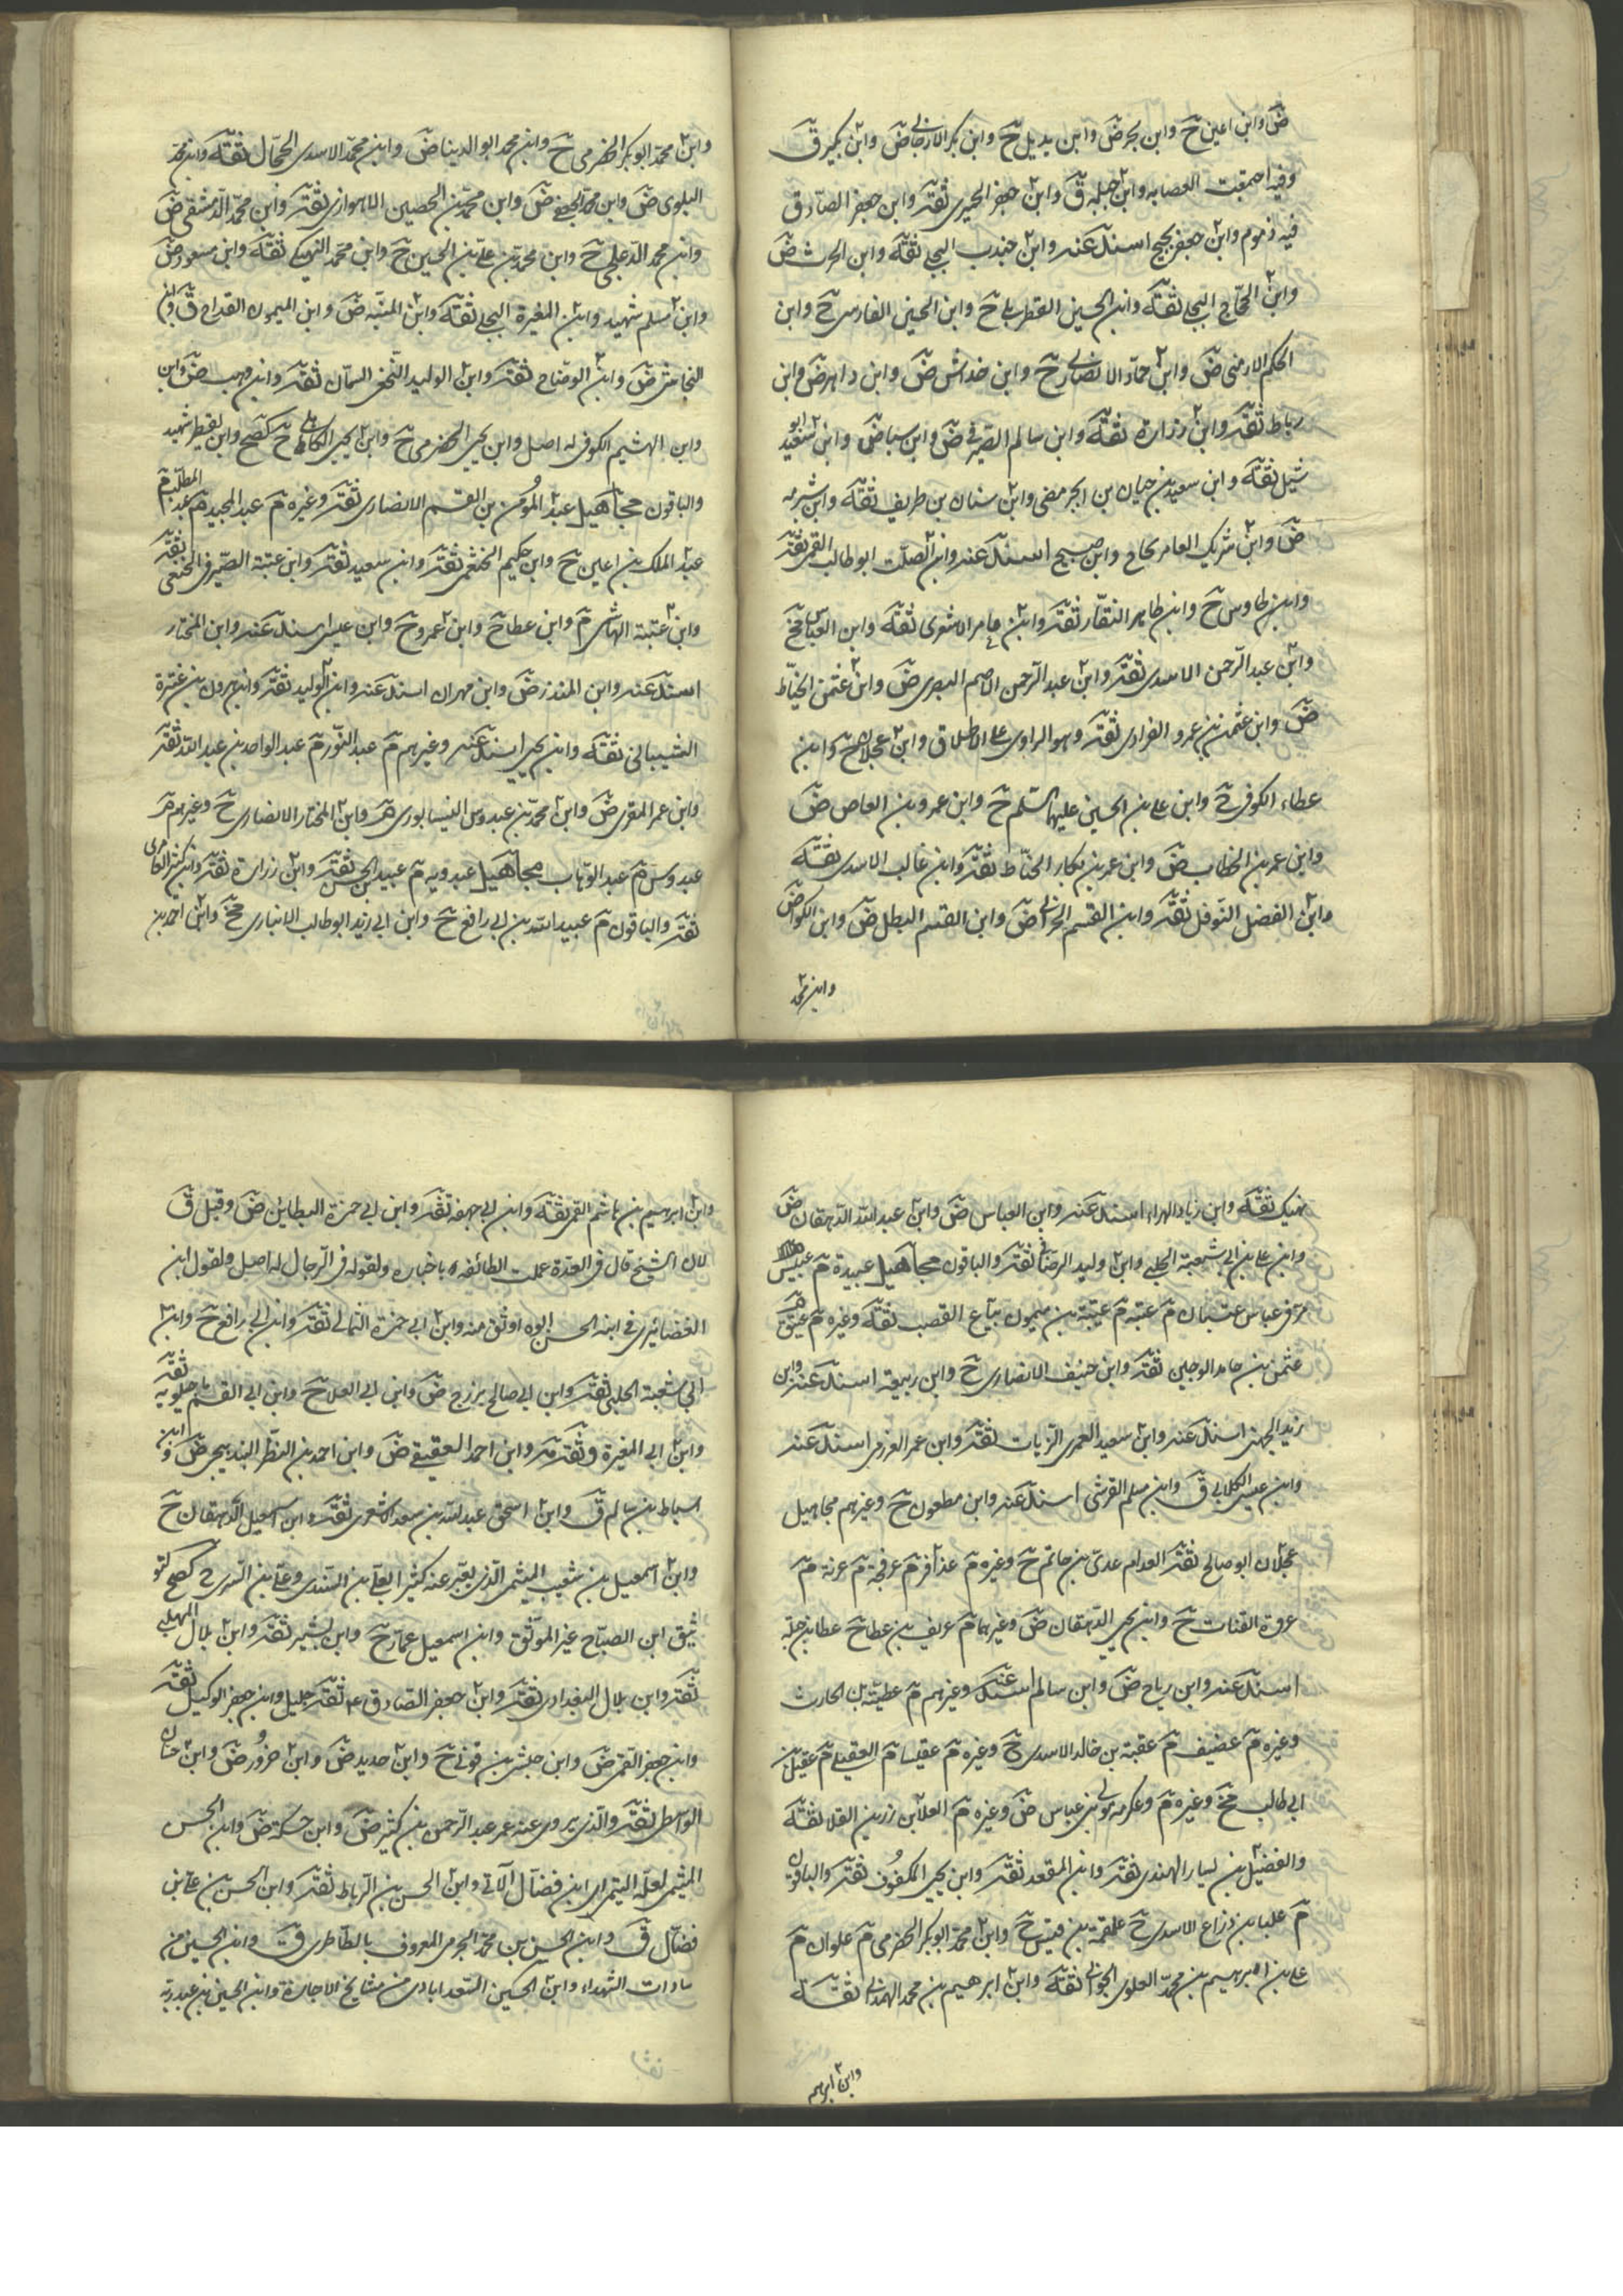 ضؔ وابن اعين حؔ وابن بحر ضؔ وابن بديل حؔ وابن بكر الارجاني ضؔ وابن بكير قؔ
وفيه اجمعت العصابه وابن جبله قؔ وابن جعفر الحميري ثقة وابن جعفر الصادق
فيه ذموم وابن جعفر اسند عنه وابن جندب البجلي ثقة وابن الحرث ضؔ
وابن الحجاج البجلي ثقة وابن الحسين القطربلي حؔ وابن الحسين الفارسي حؔ وابن
الحكم الارمني ضؔ وابن حماد الانصاري حؔ وابن خداش ضؔ وابن داهر ضؔ وابن
رباط ثقة وابن زرارة ثقة وابن سالم الصيرفي ضؔ وابن سبا ضؔ وابن سعيد ابو
شبل ثقة وابن سعيد بن حيان بن ابجر وابن سنان بن طريف ثقة وابن شبرمه
ضؔ وابن شريك العامري وابن صبيح اسند عنه وابن الصلت ابو طالب القمي ثقة
وابن طاوس حؔ وابن طاهر النقار ثقة وابن عامر الاشعري ثقة وابن العباس
وابن عبد الرحمن الاسدي ثقة وابن عبد الرحمن الاصم البصري ضؔ وابن عثمن الخياط
ضؔ وابن عثمن بن عمرو الفزاري ثقة وهو الراوي على الاطلاق وابن عجلان حؔ وابن
عطاء الكوفي حؔ وابن علي بن الحسين عليهما السلم حؔ وابن عمرو بن العاص ضؔ
وابن عمر بن الخطاب ضؔ وابن عمر بن بكار الحناط ثقة وابن غالب الاسدي ثقة
وابن الفضل النوفلي ثقة وابن القسم الحارثي ضؔ وابن القسم البطل ضؔ وابن الكوا ضؔ
وابن محمد
وابن محمد ابو بكر الحضرمي حؔ وابن محمد ابو الدينا ضؔ وابن محمد الاسدي الحجال ثقة وابن محمد
البلوي ضؔ وابن محمد الجعفي ضؔ وابن محمد بن الحصين الاهوازي ثقة وابن محمد الدمشقي ضؔ
وابن محمد الدعلجي حؔ وابن محمد بن علي بن الحسين حؔ وابن محمد النهيكي ثقة وابن مسعود ضؔ
وابن مسلم شهيد وابن المغيرة البجلي ثقة وابن المنبه ضؔ وابن الميمون القداح قؔ وابن
النجاشي ضؔ وابن الوضاح ثقة وابن الوليد النخعي السمان ثقة وابن وهب ضؔ وابن
وابن الهشيم الكوفي له اصل وابن يحيى الحضرمي حؔ وابن يحيى الكاهلي حؔ كصح وابن يقطر شهيد
والباقون مجاهيل عبد المؤمن بن القسم الانصاري ثقة وغيره مؔ عبد المجيد مؔ عبد المطلب مؔ
عبد الملك بن اعين حؔ وابن حكيم الخثعمي ثقة وابن سعيد ثقة وابن عتبة الصيرفي النخعي ثقة
وابن عتبة الهاشمي مؔ وابن عطا حؔ وابن عمرو حؔ وابن عيسى اسند عنه وابن المختار
اسند عنه وابن المنذر ضؔ وابن مهران اسند عنه وابن الوليد ثقة وابن هرون بن عنترة
الشيباني ثقة وابن يحيى اسند عنه وغيرهم مؔ عبد النور مؔ عبد الواحد بن عبد الله ثقة
وابن عمر المقري ضؔ وابن محمد بن عبدوس النيسابوري وابن المختار الانصاري حؔ وغيرهم مؔ
عبدوس مؔ عبد الوهاب مجاهيل عبدويه مؔ عبيد بن الحسن ثقة وابن زرارة ثقة وابن كثير العامري
ثقة والباقون مؔ عبيد الله بن ابي رافع حؔ وابن ابي زيد ابو طالب الانباري وابن احمد بن
نهيك ثقة وابن زياد الهراء اسند عنه وابن العباس ضؔ وابن عبد الله الدهقان ضؔ
وابن علي بن ابي شعبة الحلبي وابن وليد الرصافي ثقة والباقون مجاهيل عبيدة مؔ عبيس
مؔ في عباس عتبان مؔ عتبه مؔ عتيبة بن ميمون بياع القصب ثقة وغيره مؔ عتيق مؔ
عثمن بن حامد الوجيني ثقة وابن حنيف الانصاري حؔ وابن ربيعة اسند عنه وابن
زيد الجهني اسند عنه وابن سعيد العمري الزيات ثقة وابن عمر العرزمي اسند عنه
وابن عيسى الكلابي قؔ وابن مسلم القرشي اسند عنه وابن مظعون حؔ وغيرهم مجاهيل
عجلان ابو صالح ثقة العدام عدي بن حاتم حؔ وغيره مؔ عذافر مؔ عرفجة مؔ عرنة مؔ
عروة القتات حؔ وابن يحيى الدهقان ضؔ وغيرهما مؔ عريف بن عطا حؔ عطا بن جبلة
اسند عنه وابن رباح ضؔ وابن سالم اسند عنه وغيرهم مؔ عطية بن الحارث
وغيره مؔ عضيف مؔ عقبة بن خالد الاسدي حؔ وغيره مؔ عقيسا مؔ العقيلي مؔ عقيل بن
ابي طالب وغيره مؔ وعكرمه مولى بن عباس ضؔ وغيره مؔ العلا بن رزين القلا ثقة
والفضيل بن يسار الهندي ثقة وابن المقعد ثقة وابن يحيى المكفوف ثقة والباقون
مؔ علبا بن ذراع الاسدي حؔ علقمة بن قيس حؔ وابن محمد ابو بكر الحضرمي مؔ علوان مؔ
علي بن ابرهيم بن محمد العلوي الجواني ثقة وابن ابرهيم بن محمد الهمداني ثقة
وابن ابرهيم
وابن ابرهيم بن هاشم القمي ثقة وابن ابي جهمه ثقة وابن ابي حمزة البطايني ضؔ وقيل قؔ
لان الشيخ قال في العدة عملت الطائفه باخباره ولقوله في الرجال له اصل ولقول ابن
الغضائري في ابنه الحسن ابوه اوثق منه وابن ابي حمزة الثمالي ثقة وابن ابي رافع حؔ وابن
ابي شعبة الحلبي ثقة وابن ابي صالح بزرج ضؔ وابن ابي العلا حؔ وابن ابي القسم ماجيلويه ثقة
وابن ابي المغيرة وثقة مؔ وابن احمد العقيقي ضؔ وابن احمد بن النظر البنديجي ضؔ وابن
اسباط بن سالم قؔ وابن اسحق عبد الله بن سعد الاشعري ثقة وابن اسمعيل الدهقان حؔ
وابن اسمعيل بن شعيب الميثمي الذي يعبر عنه كثير العلي بن السندي وعلي بن السري حؔ كصح
ابن الصباح غير الموثق وابن اسمعيل عمار حؔ وابن بشير ثقة وابن بلال المهلبي
ثقة وابن بلال البغدادي ثقة وابن جعفر الصادق ع ثقة جليل وابن جعفر الوكيل ثقة
وابن جعفر القمي ضؔ وابن حبشي بن قوني حؔ وابن حديد ضؔ وابن حزور ضؔ وابن حسان
الواسطي ثقة والذي يروي عنه عمر عبد الرحمن بن كثير ضؔ وابن حسكة ضؔ وابن الحسن
الميثمي لعله التيمي اي ابن فضال الآتي وابن الحسن بن الرباط ثقة وابن الحسن بن علي بن
فضال قؔ وابن الحسن بن محمد الجرمي المعروف بالطاطري قؔ وابن الحسين من
سادات الشهداء وابن الحسين السعدابادي من مشايخ الاجازة وابن الحسين بن عبد ربه